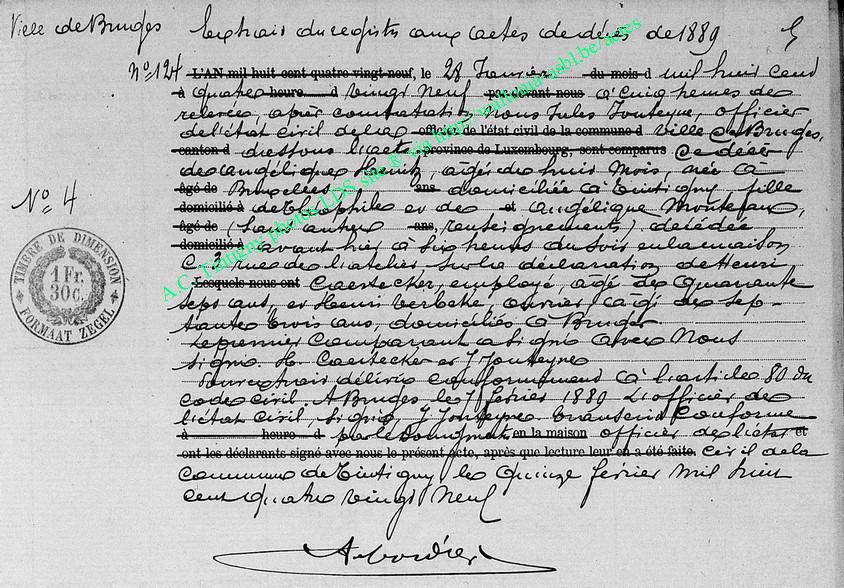 Ville de Bruges
Extrait du registre aux actes de décès de 1889
No 124 L'AN mil huit cent quatre vingt-neuf, le 28 Janvier du mois d mil huit cent
à quatre heure d vingt neuf par-devant nous à cinq heures de
relevée, après constatation, nous Jules Fonteyne, officier
de l'état civil de la officier de l'état civil de la commune d ville de Bruges,
canton d dressons l'acte province de Luxembourg, sont comparus de décès
de Angélique Heintz, âgée de huit mois, née à
âgé de Bruxelles ans domiciliée à Tintigny, fille
domicilié à de Théophile et de et Angélique Montefaux,
âgé de (sans autres ans, renseignements) décédée
domicilié à avant hier à six heures du soir en la maison
C 3 rue de l'atelier, sur la déclaration de Henri
Lesquels nous ont Caestecker, employé, âgé de quarante
sept ans, et Henri Verbeke, ouvrier âgé de sep-
tante trois ans, domiciliés à Bruges.
Le premier comparant a signé avec Nous
signé. H. Caestecker et J Fonteyne
Pour extrait délivré conformément à l'article 80 du
code civil. A Bruges le 7 février 1889 L'officier de
l'état civil, signé, J Fonteyne. Transcrit conforme
à heure d par le soussigné en la maison officier de l'état et
ont les déclarants signé avec nous le présent acte, après que lecture leur en a été faite. civil de la
commune de Tintigny le quinze février mil huit
cent quatre vingt neuf
No 4
TIMBRE DE DIMENSION
1 Fr.
30 c.
FORMAAT ZEGEL
A.C. Tintigny photos LDS site © via http://wallonia-asbl.be/actes